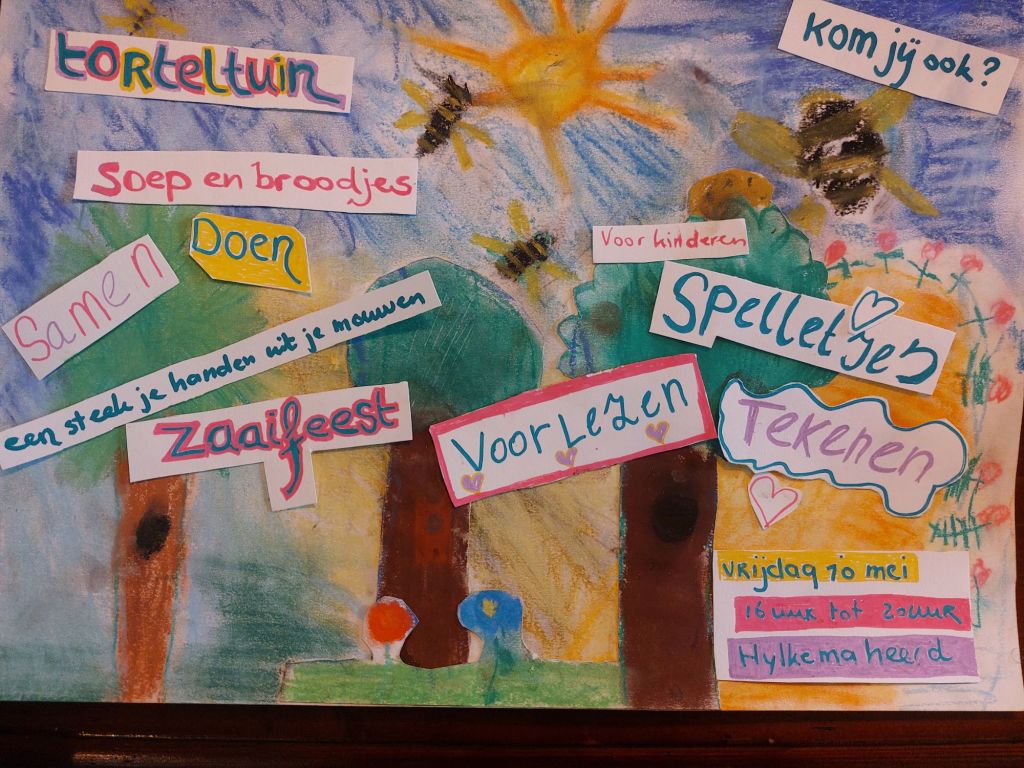 torteltuin
Kom jij ook?
Soep en broodjes
Samen
Doen
Voor kinderen
Spelletjes
een steek je handen uit je mouwen
Zaaifeest
Voorlezen
Tekenen
vrijdag 10 mei
16 uur tot 20 uur
Hylkemaheerd